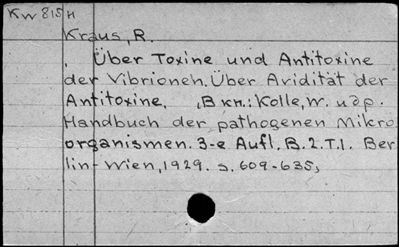 Kw 815 H
Kraus, R.
Über Toxine und Antitoxine
der Vibrionen. Über Avidität der
Antitoxine. , В кн.: Kolle, W. и др.
Handbuch der pathogenen Mikro
organismen. 3-e Aufl. B. 2. T. 1. Ber
lin-Wien, 1929. s. 609-635,